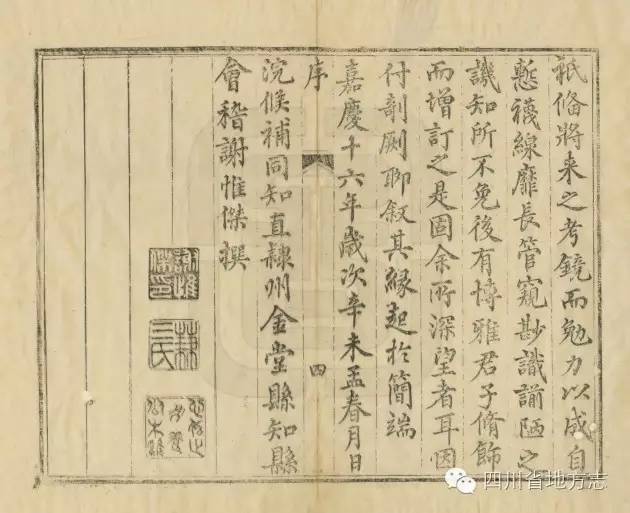 祇俻將来之考鏡而勉力以成自
慙襪線靡長管窺尠識謭陋之
譏知所不免後有博雅君子脩飾
而增訂之是固余所深望者耳因
付剞劂聊叙其緣起於簡端
嘉慶十六年歲次辛未孟春月日
序
四
浣候補同知直隸州金堂縣知縣
會稽謝惟傑撰
謝惟
傑印
四川省地方志